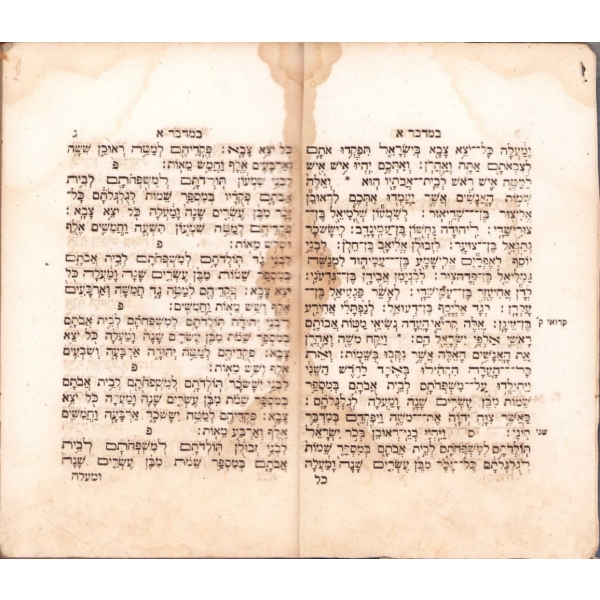 במדבר א
ומעלה כל־יצא צבא בישראל תפקדו אתם
לצבאתם אתה ואהרן: ואתכם יהיו איש איש
למטה איש ראש לבית־אבתיו הוא: ואלה
שמות האנשים אשר יעמדו אתכם לראובן
אליצור בן־שדיאור: לשמעון שלמיאל בן־
צורישדי: ליהודה נחשון בן־עמינדב: ליששכר
נתנאל בן־צוער: לזבולן אליאב בן־חלן: לבני
יוסף לאפרים אלישמע בן־עמיהוד למנשה
גמליאל בן־פדהצור: לבנימן אבידן בן־גדעני:
לדן אחיעזר בן־עמישדי: לאשר פגעיאל בן־
עכרן: לגד אליסף בן־דעואל: לנפתלי אחירע
בן־עינן: אלה קריאי העדה נשיאי מטות אבותם
קרואי ק'
ראשי אלפי ישראל הם: ויקח משה ואהרן
את האנשים האלה אשר נקבו בשמות: ואת
כל־העדה הקהילו באחד לחדש השני
ויתילדו על־משפחתם לבית אבתם במספר
שמות מבן עשרים שנה ומעלה לגלגלתם:
כאשר צוה יהוה את־משה ויפקדם במדבר
סיני: ס ויהיו בני־ראובן בכר ישראל
שני
תולדתם למשפחתם לבית אבתם במספר שמות
לגלגלתם כל־זכר מבן עשרים שנה ומעלה
כל
במדבר א
ג
כל יצא צבא: פקדיהם למטה ראובן ששה
וארבעים אלף וחמש מאות: פ
לבני שמעון תולדתם למשפחתם לבית
אבתם פקדיו במספר שמות לגלגלתם כל־
זכר מבן עשרים שנה ומעלה כל יצא צבא:
פקדיהם למטה שמעון תשעה וחמשים אלף
ושלש מאות: פ
לבני גד תולדתם למשפחתם לבית אבתם
במספר שמות מבן עשרים שנה ומעלה כל
יצא צבא: פקדיהם למטה גד חמשה וארבעים
אלף ושש מאות וחמשים: פ
לבני יהודה תולדתם למשפחתם לבית אבתם
במספר שמת מבן עשרים שנה ומעלה כל יצא
צבא: פקדיהם למטה יהודה ארבעה ושבעים
אלף ושש מאות: פ
לבני יששכר תולדתם למשפחתם לבית אבתם
במספר שמת מבן עשרים שנה ומעלה כל יצא
צבא: פקדיהם למטה יששכר ארבעה וחמשים
אלף וארבע מאות: פ
לבני זבולן תולדתם למשפחתם לבית
אבתם במספר שמת מבן עשרים שנה
ומעלה